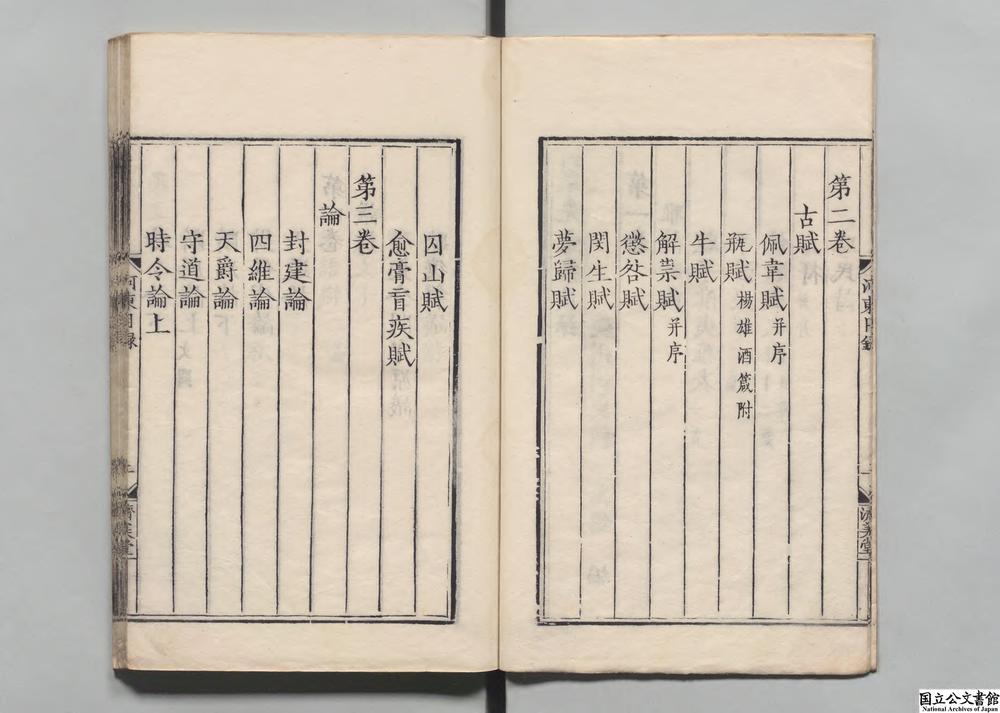 第二卷
古賦
佩韋賦并序
瓶賦楊雄酒箴附
牛賦
解祟賦并序
懲咎賦
閔生賦
夢歸賦
囚山賦
愈膏肓疾賦
第三卷
論
封建論
四維論
天爵論
守道論
時令論上
河東目錄
濟美堂
国立公文書館
National Archives of Japan